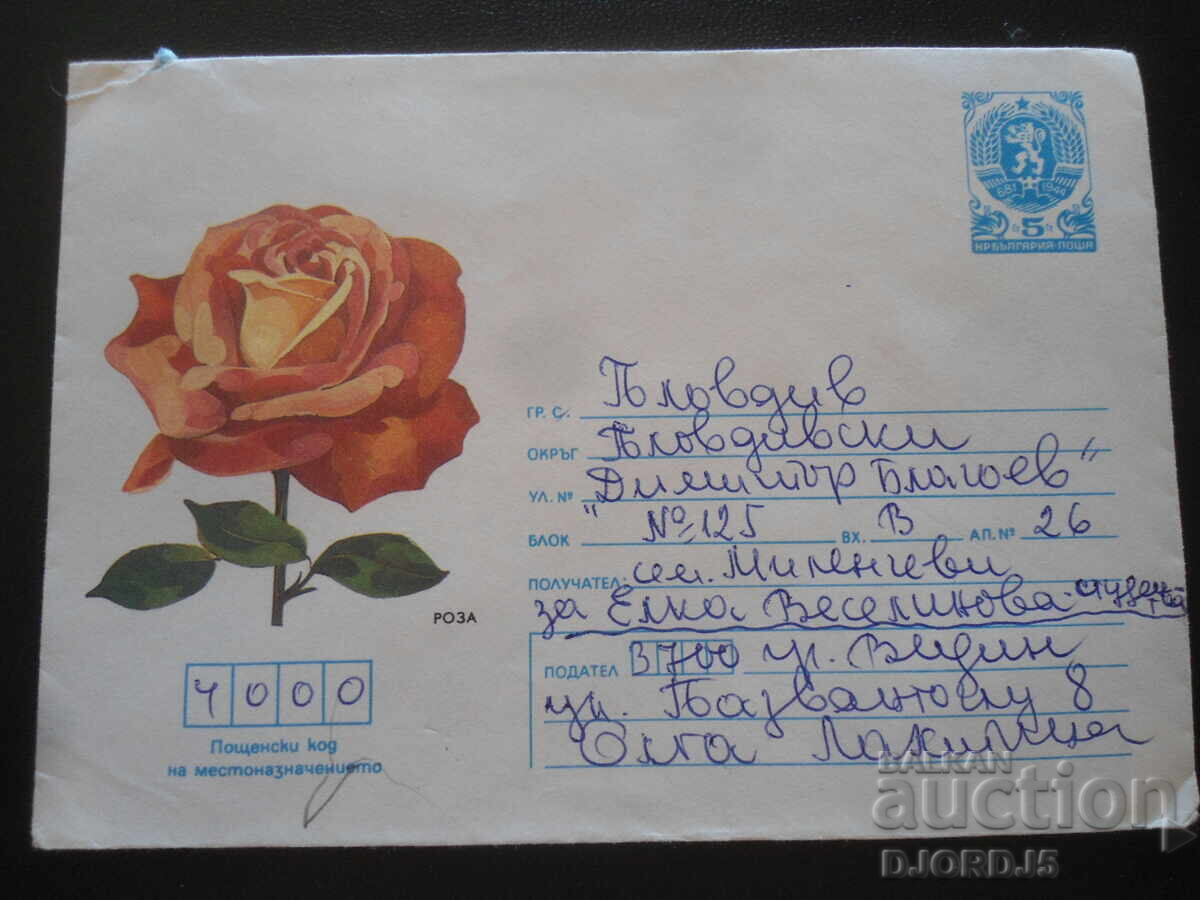 681 1944
5
НР БЪЛГАРИЯ-ПОЩА
ГР. С. Пловдив
ОКРЪГ Пловдивски
УЛ. № "Димитър Благоев"
БЛОК №125 ВХ. В АП. № 26
ПОЛУЧАТЕЛ: сем. Миленчеви
за Елка Веселинова - студентка
РОЗА
ПОДАТЕЛ 3700 гр. Видин
ул. 8
Олга
4000
Пощенски код
на местоназначението
BALKAN
auction
DJORDJ5